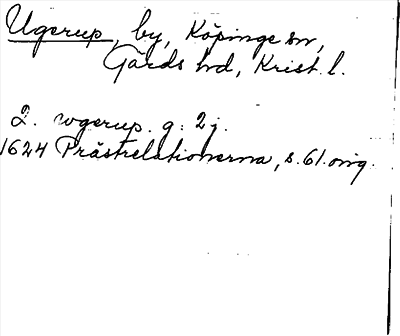 Ugerup, by, Köpinge sn,
Gärds hd, Krist. l.
2. wgerup. g: 2 j.
1624 Prästrelationerna, s. 61. orig.